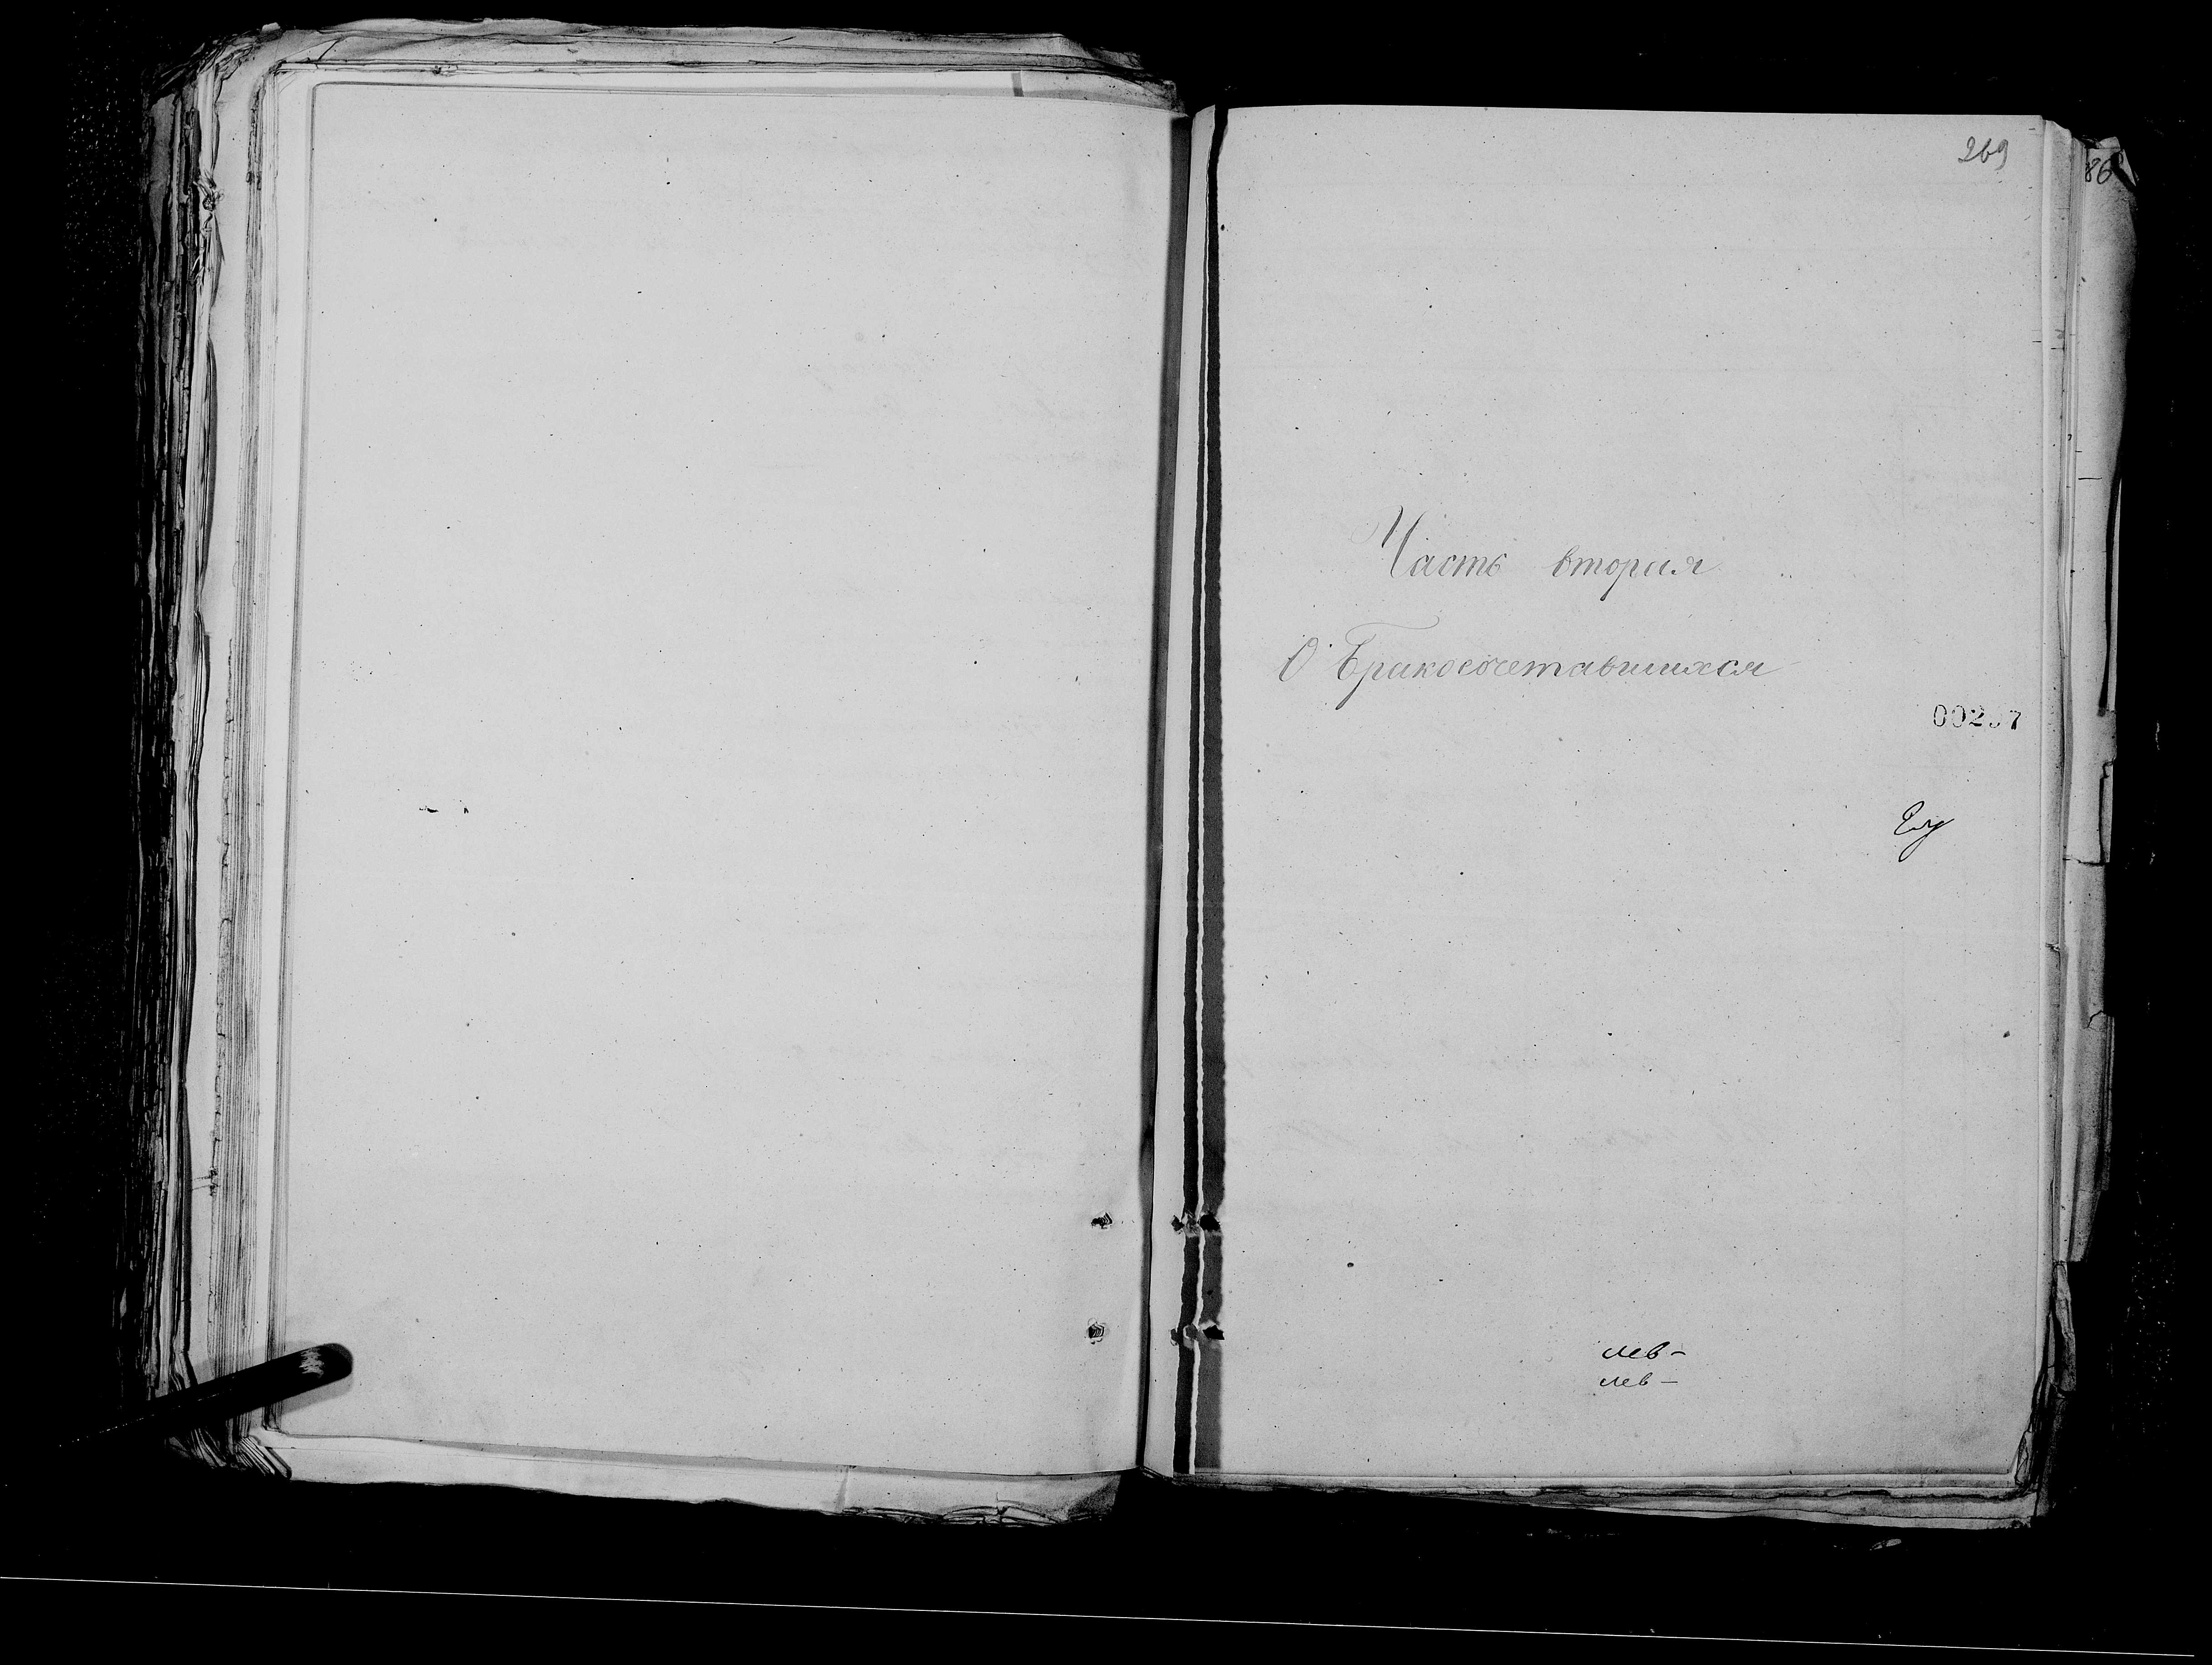 269
86
Часть вторая
О Бракосочетавшихся
лев-
лев-